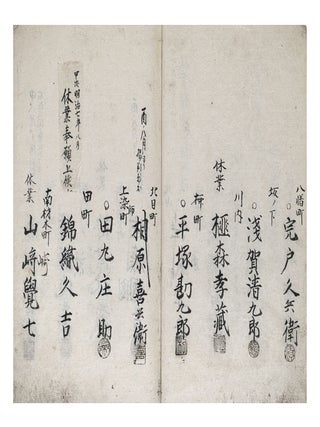 八幡町
○宍戸久兵衛
坂ノ下
○浅賀清九郎
川内
休業
榧森孝蔵
柳町
○平塚勘九郎
北目町
相原喜兵衛
上染師町
○田丸庄助
田町
錦織久吉
甲戌明治七年八月
休業奉願上候
南材木町
休業
山崎覺七